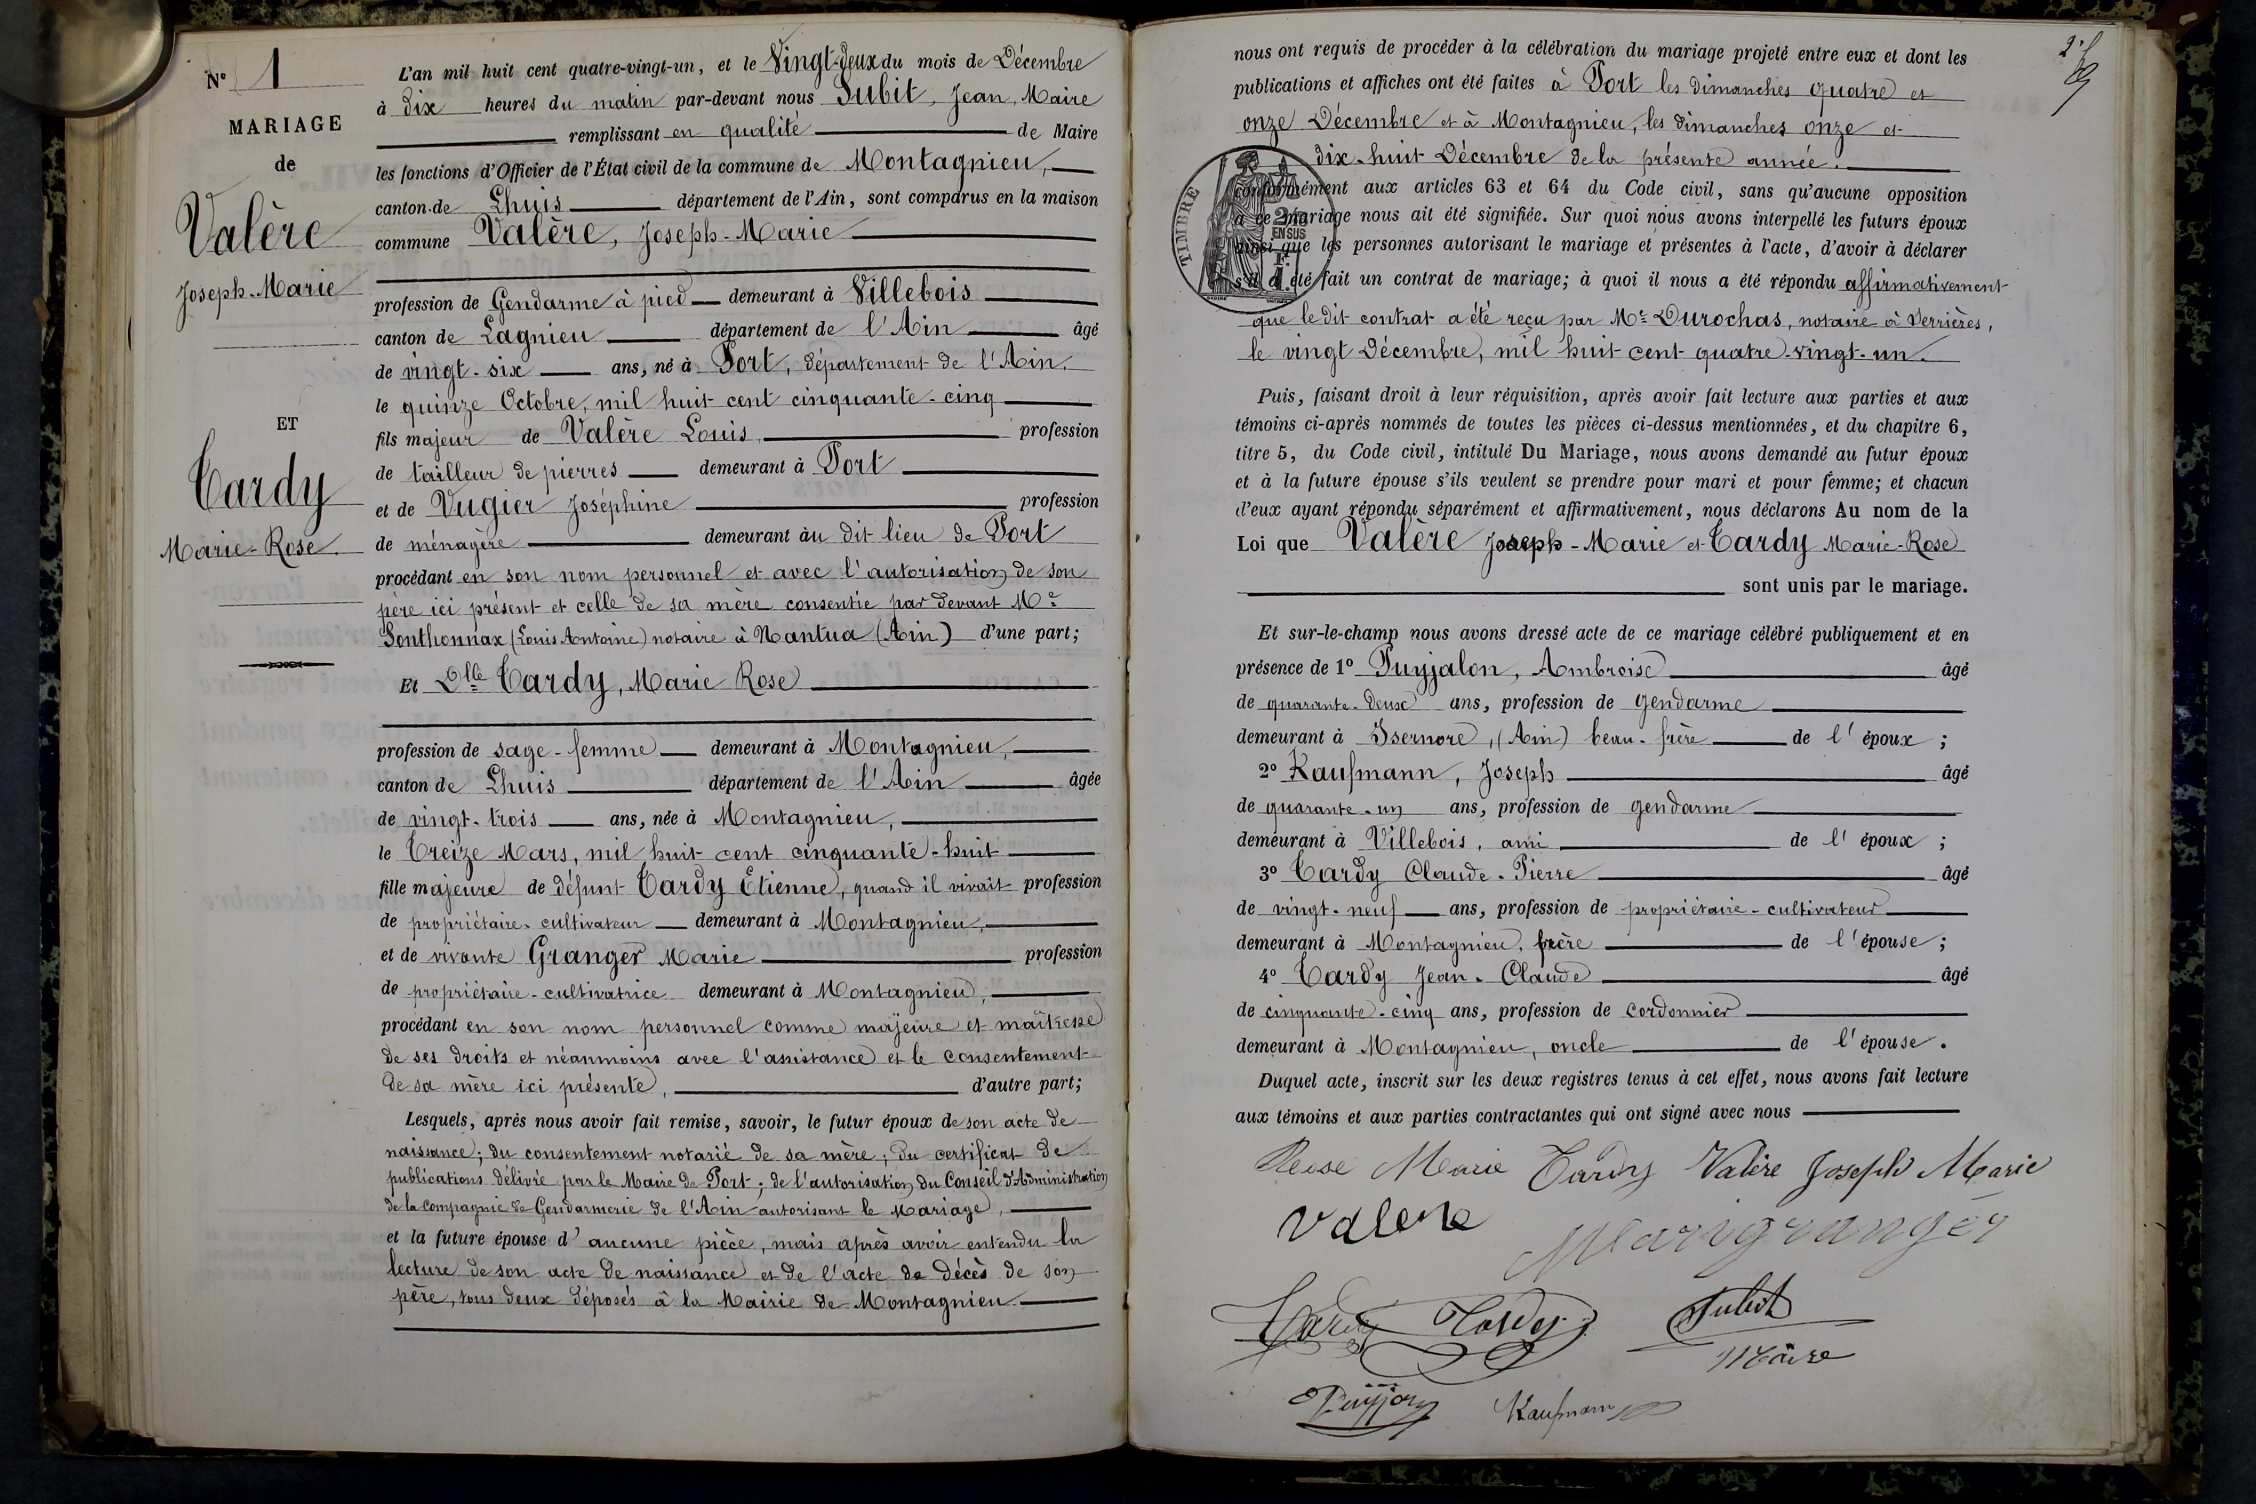 N° 1
MARIAGE
de
Valère
Joseph-Marie
ET
Tardy
Marie-Rose
L'an mil huit cent quatre-vingt-un, et le Vingt-deux du mois de Décembre
à dix heures du matin par-devant nous Subit, Jean, Maire
remplissant en qualité de Maire
les fonctions d'Officier de l'État civil de la commune de Montagnieu,
canton de Lhuis département de l'Ain, sont comparus en la maison
commune Valère, Joseph-Marie
profession de Gendarme à pied demeurant à Villebois
canton de Lagnieu département de l'Ain âgé
de vingt-six ans, né à Port, département de l'Ain.
le quinze Octobre, mil huit cent cinquante-cinq
fils majeur de Valère Louis, profession
de tailleur de pierres demeurant à Port
et de Vugier Joséphine profession
de ménagère demeurant àu dit lieu de Port
procédant en son nom personnel et avec l'autorisation de son
père ici présent et celle de sa mère consentie par devant Me
Sonthonnax (Louis Antoine) notaire à Nantua (Ain) d'une part;
Et Dlle Tardy, Marie Rose
profession de sage-femme demeurant à Montagnieu,
canton de Lhuis département de l'Ain âgée
de vingt-trois ans, née à Montagnieu,
le Treize Mars, mil huit cent cinquante-huit
fille majeure de défunt Tardy Etienne, quand il vivait profession
de propriétaire-cultivateur demeurant à Montagnieu,
et de vivante Granger Marie profession
de propriétaire-cultivatrice demeurant à Montagnieu,
procédant en son nom personnel comme majeure et maîtresse
de ses droits et néanmoins avec l'assistance et le consentement
de sa mère ici présente, d'autre part;
Lesquels, après nous avoir fait remise, savoir, le futur époux de son acte de
naissance; du consentement notarié de sa mère; du certificat de
publications délivré par le Maire de Port; de l'autorisation du Conseil d'Administration
de la Compagnie de Gendarmerie de l'Ain autorisant le Mariage,
et la future épouse d'aucune pièce, mais après avoir entendu la
lecture de son acte de naissance et de l'acte de décès de son
père, tous deux déposés à la Mairie de Montagnieu.
nous ont requis de procéder à la célébration du mariage projeté entre eux et dont les
publications et affiches ont été faites à Port les dimanches quatre et
onze Décembre et à Montagnieu, les dimanches onze et
dix-huit Décembre de la présente année.
conformément aux articles 63 et 64 du Code civil, sans qu'aucune opposition
à ce mariage nous ait été signifiée. Sur quoi nous avons interpellé les futurs époux
ainsi que les personnes autorisant le mariage et présentes à l'acte, d'avoir à déclarer
s'il a été fait un contrat de mariage; à quoi il nous a été répondu affirmativement
que le dit contrat a été reçu par Me Durochas, notaire à Serrières,
le vingt Décembre, mil huit cent quatre-vingt-un.
TIMBRE
EN SUS
Puis, faisant droit à leur réquisition, après avoir fait lecture aux parties et aux
témoins ci-après nommés de toutes les pièces ci-dessus mentionnées, et du chapitre 6,
titre 5, du Code civil, intitulé Du Mariage, nous avons demandé au futur époux
et à la future épouse s'ils veulent se prendre pour mari et pour femme; et chacun
d'eux ayant répondu séparément et affirmativement, nous déclarons Au nom de la
Loi que Valère Joseph-Marie et Tardy Marie-Rose
sont unis par le mariage.
Et sur-le-champ nous avons dressé acte de ce mariage célébré publiquement et en
présence de 1° Puyjalon, Ambroise âgé
de quarante-deux ans, profession de gendarme
demeurant à Isernore, (Ain) beau-frère de l'époux;
2° Kaufmann, Joseph âgé
de quarante-un ans, profession de gendarme
demeurant à Villebois, ami de l'époux;
3° Tardy Claude-Pierre âgé
de vingt-neuf ans, profession de propriétaire-cultivateur
demeurant à Montagnieu, frère de l'épouse;
4° Tardy Jean-Claude âgé
de cinquante-cinq ans, profession de cordonnier
demeurant à Montagnieu, oncle de l'épouse.
Duquel acte, inscrit sur les deux registres tenus à cet effet, nous avons fait lecture
aux témoins et aux parties contractantes qui ont signé avec nous
Marie Tardy Valère Joseph Marie
Valere Marigranger
Tardy Tardy Subit
Maire
Kaufmann